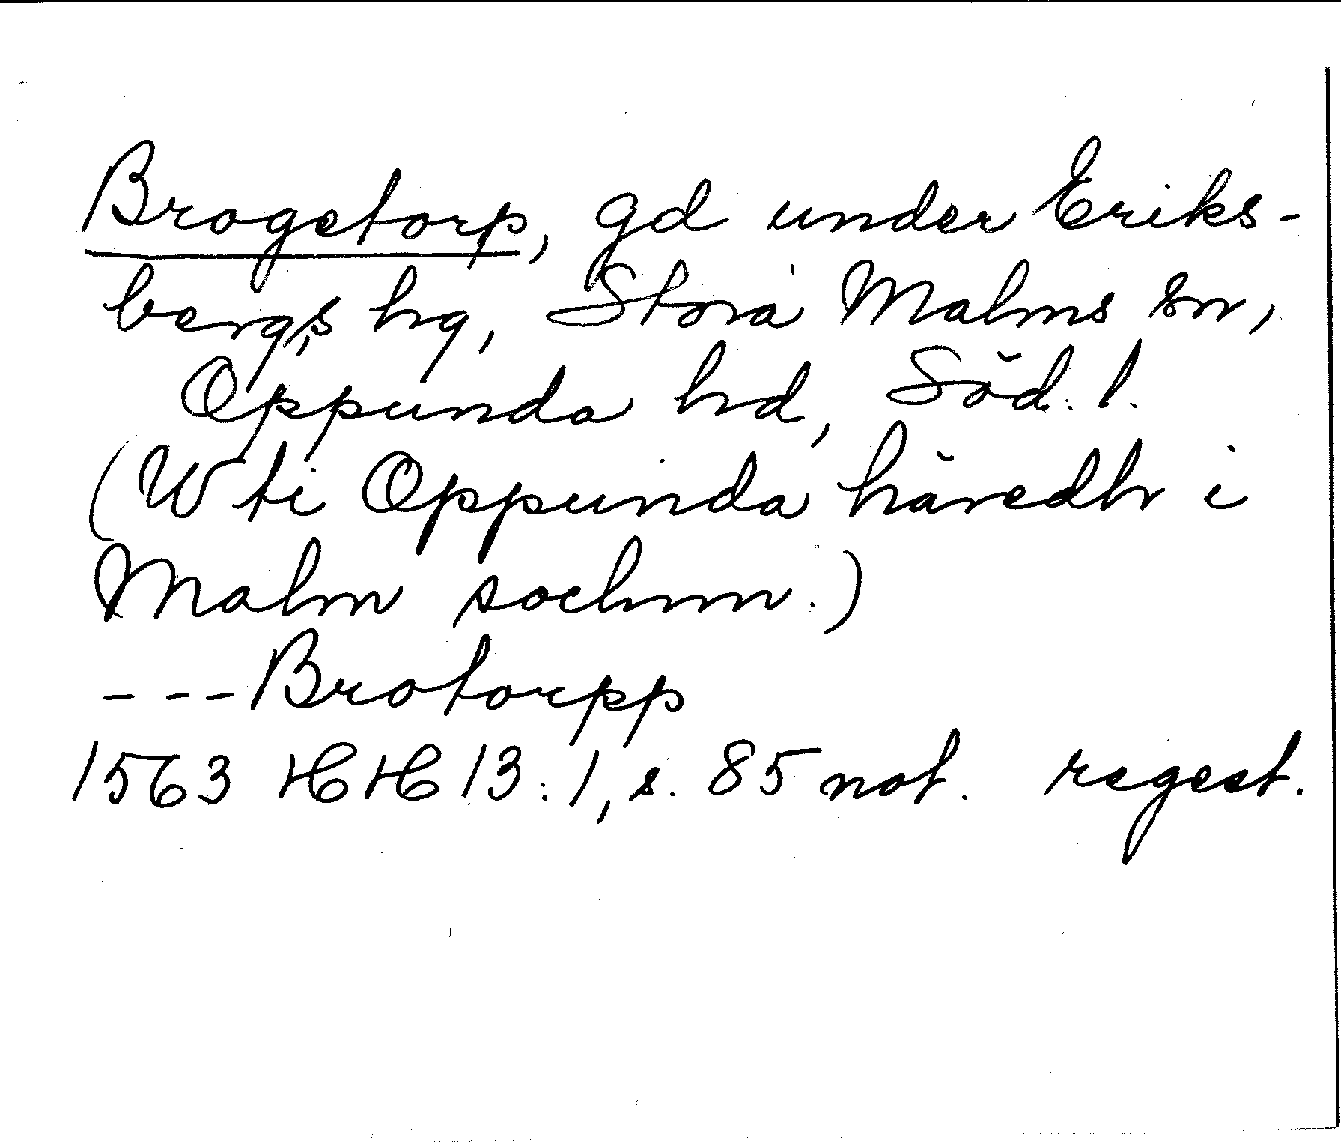 Brogetorp, gd under Eriks-
bergs hg, Stora Malms sn,
Oppunda hd, Söd. l.
(Wti Oppunda häredh i
Malm sochnn.)
--- Brotorpp
1563 HH 13:1, s. 85 not. regest.